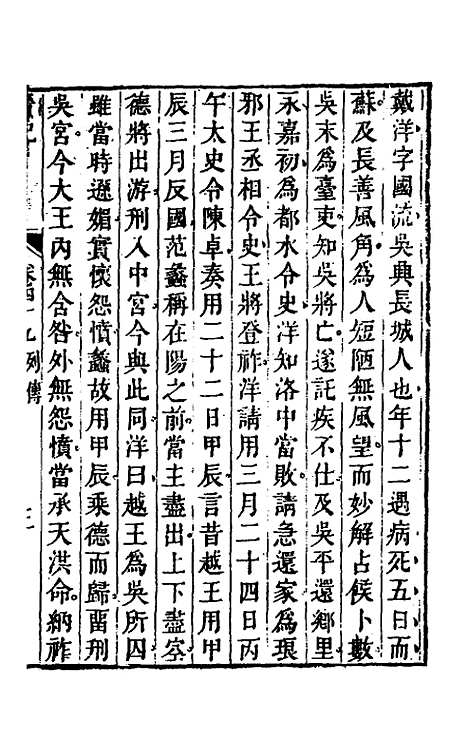 戴洋字國流吳興長城人也年十二遇病死五日而
蘇及長善風角為人短陋無風望而妙解占候卜數
吳末為臺吏知吳將亡遂託疾不仕及吳平還鄉里
永嘉初為都水令史洋知洛中當敗請急還家為琅
邪王丞相令史王將登祚洋請用三月二十四日丙
午太史令陳卓奏用二十二日甲辰言昔越王用甲
辰三月反國范蠡稱在陽之前當主盡出上下盡空
德將出游刑入中宮今與此同洋曰越王為吳所囚
雖當時遜媚實懷怨憤蠡故用甲辰乘德而歸畱刑
吳宮今大王內無含咎外無怨憤當承天洪命納祚
卷四十九列傳